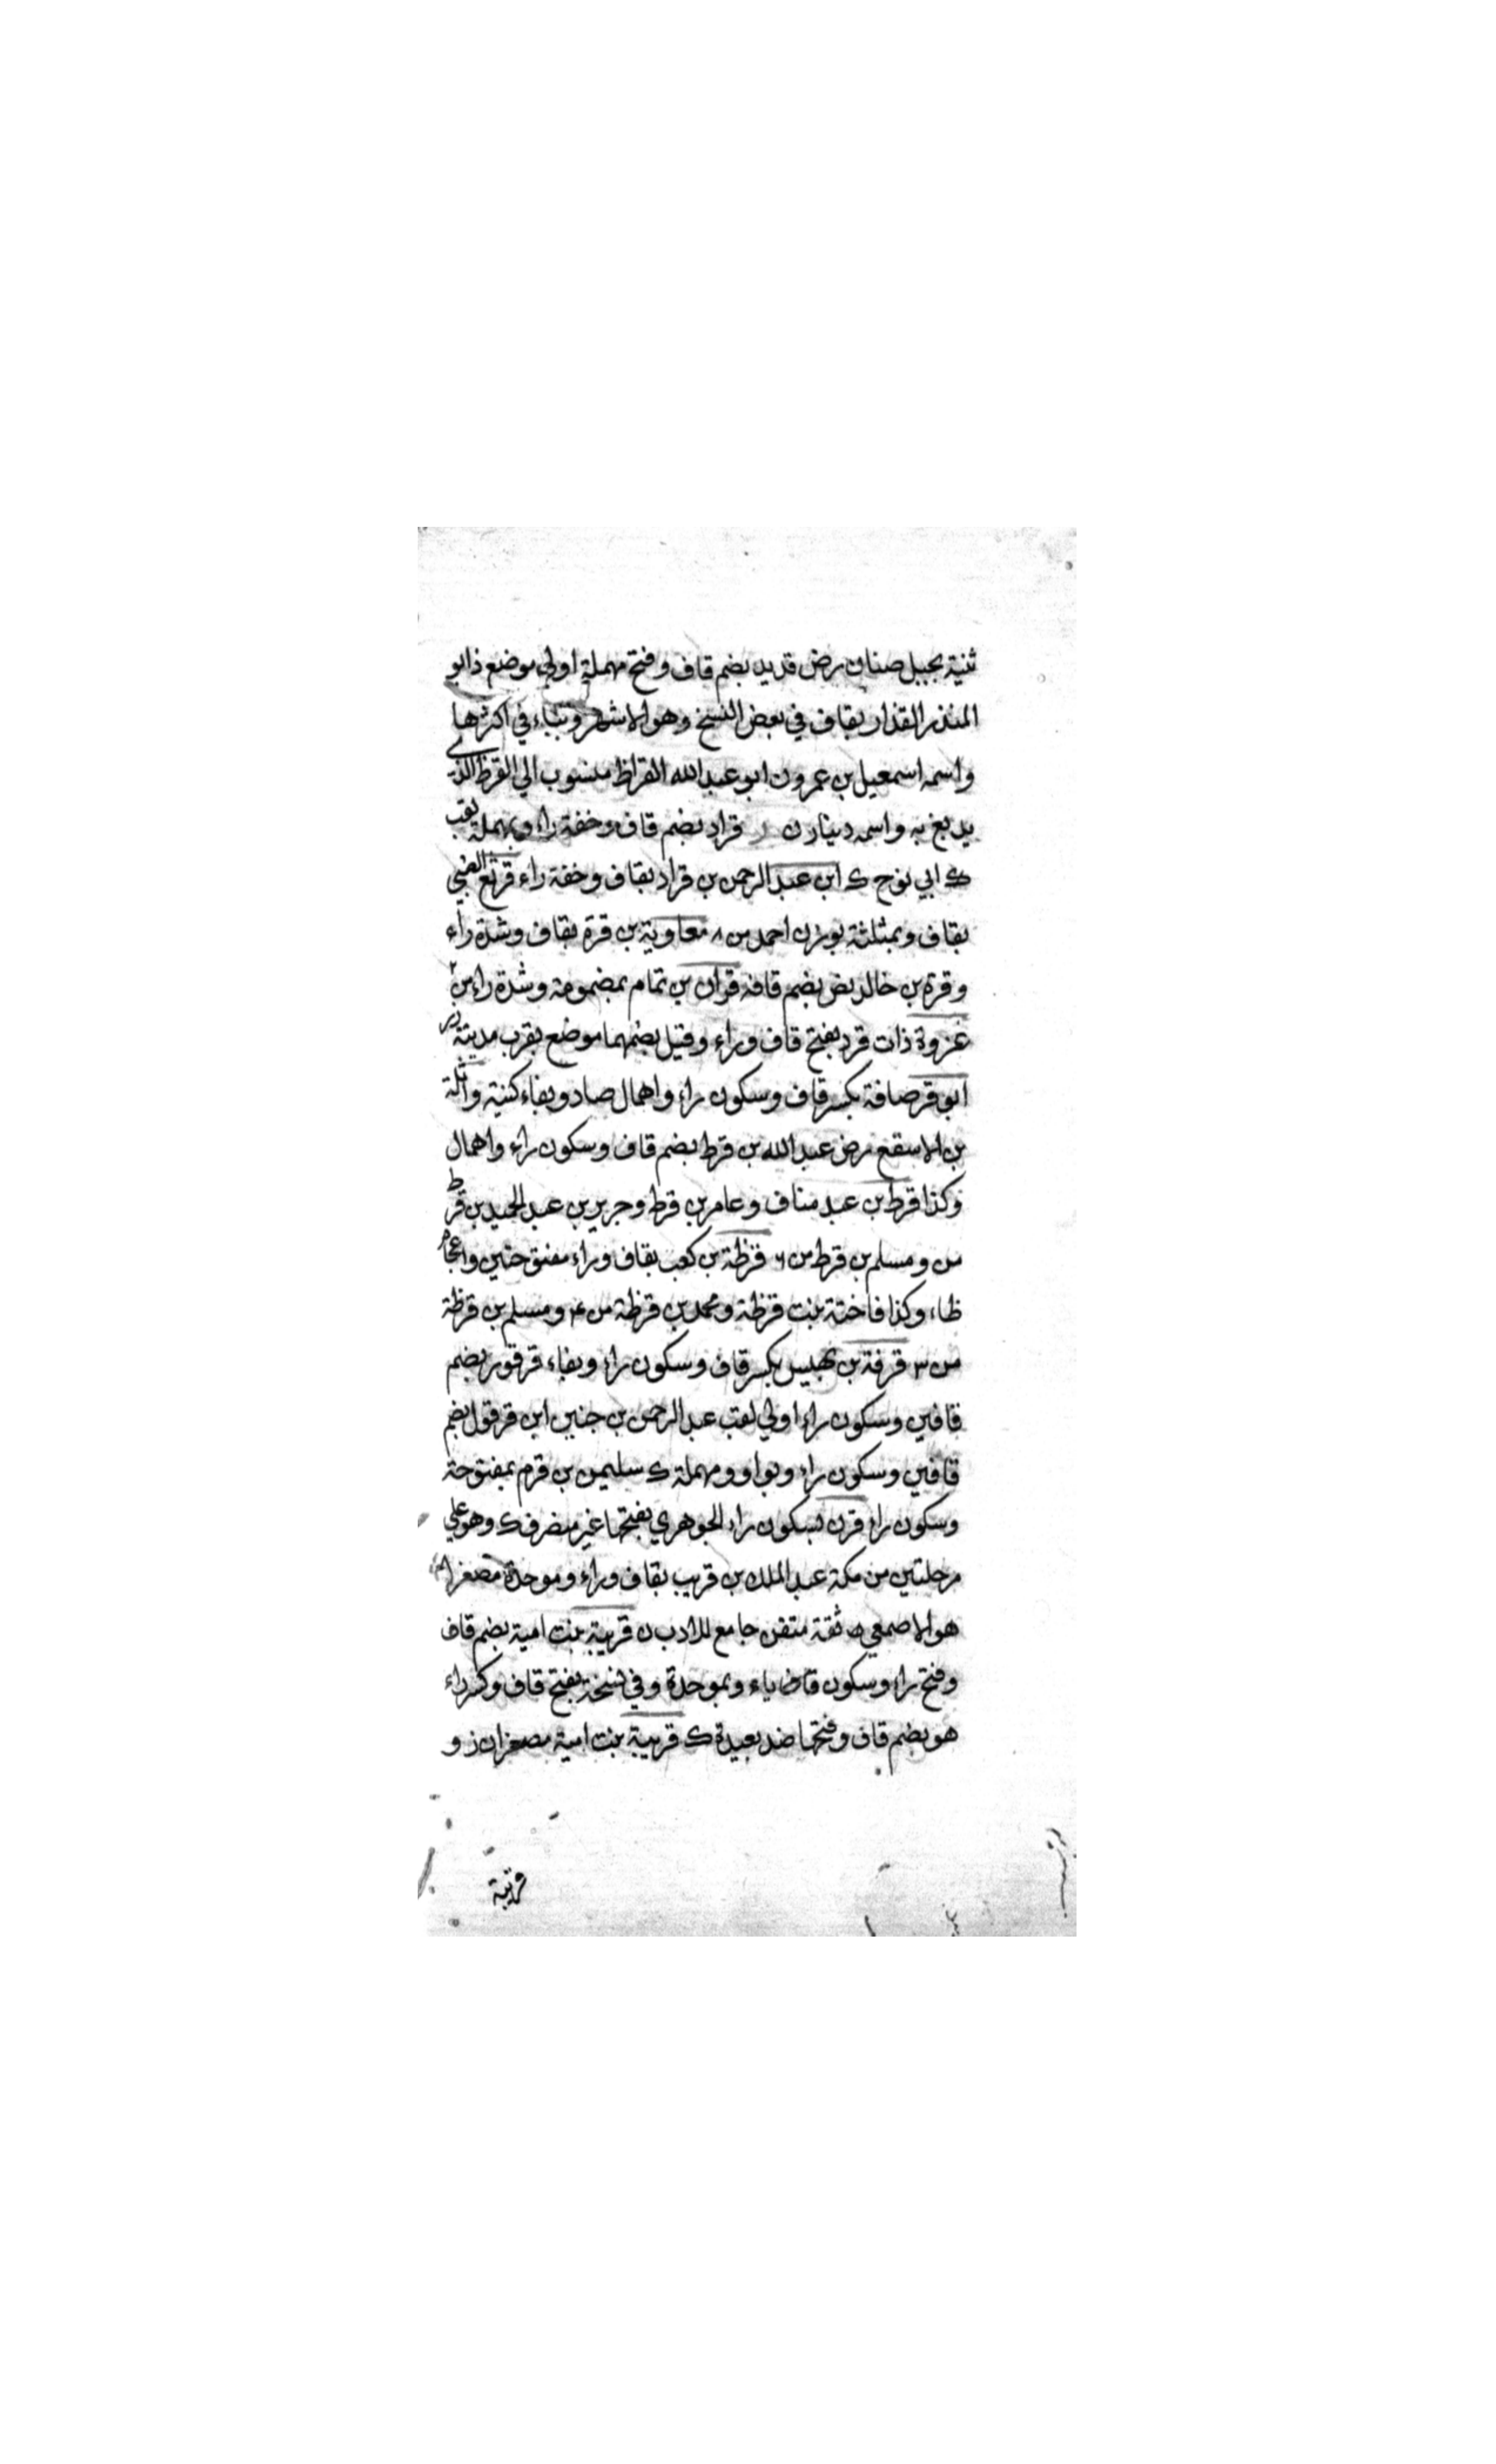 ثنية بجبل ضنان رض قديد بضم قاف وفتح مهملة اولى موضع ذ ابو
المنذر القذار بقاف في بعض النسخ وهو الاشهر وبباء في اكثرها
واسمه اسمعيل بن عمرو ن ابو عبد الله القراظ منسوب الي القرظ الذي
يدبغ به واسمه دينار ن قراد بضم قاف وخفة راء وبمهملة لقب
ك ابي نوح ك ابن عبد الرحمن بن قراد بقاف وخفة راء قرثع الضبي
بقاف وبمثلثة بوزن احمد من ٨ معاوية بن قرة بقاف وشدة راء
وقرة بن خالد بض بضم قافه قران بن تمام بمضمومة وشدة راء من ٢
غزوة ذات قرد بفتح قاف وراء وقيل بضمهما موضع بقرب مدينة
ابو قرصافة بكسر قاف وسكون راء واهمال صاد وبفاء كنية واثلة
بن الاسقع رض عبد الله بن قرط بضم قاف وسكون راء واهمال
وكذا قرط بن عبد مناف وعامر بن قرط وجرير بن عبد الحميد بن قرط
من ومسلم بن قرط من ٦ قرظة بن كعب بقاف وراء مفتوحتين واعجام
ظاء وكذا فاختة بنت قرظة ومحمد بن قرظة من ٤ ومسلم بن قرظة
من ٣ قرفة بن بهيس بكسر قاف وسكون راء وبفاء قرقور بضم
قافين وسكون راء اولي لقب عبد الرحمن بن جنين ابن قرقول بضم
قافين وسكون راء وبواو ومهملة ك سليمن بن قرم بمفتوحة
وسكون راء قرن بسكون راء الجوهري بفتحها غير منصرف ك وهو علي
مرحلتين من مكة عبد الملك بن قريب بقاف وراء وموحدة مصغرا
هو الاصمعي ثقة متقن جامع للادب ن قريبة بنت امية بضم قاف
وفتح راء وسكون قاف ياء وبموحدة وفي نسخة بفتح قاف وكسر راء
هو بضم قاف وفتحها ضد بعيدة ك قريبة بنت امية مصغرا ن ز و
قريبة